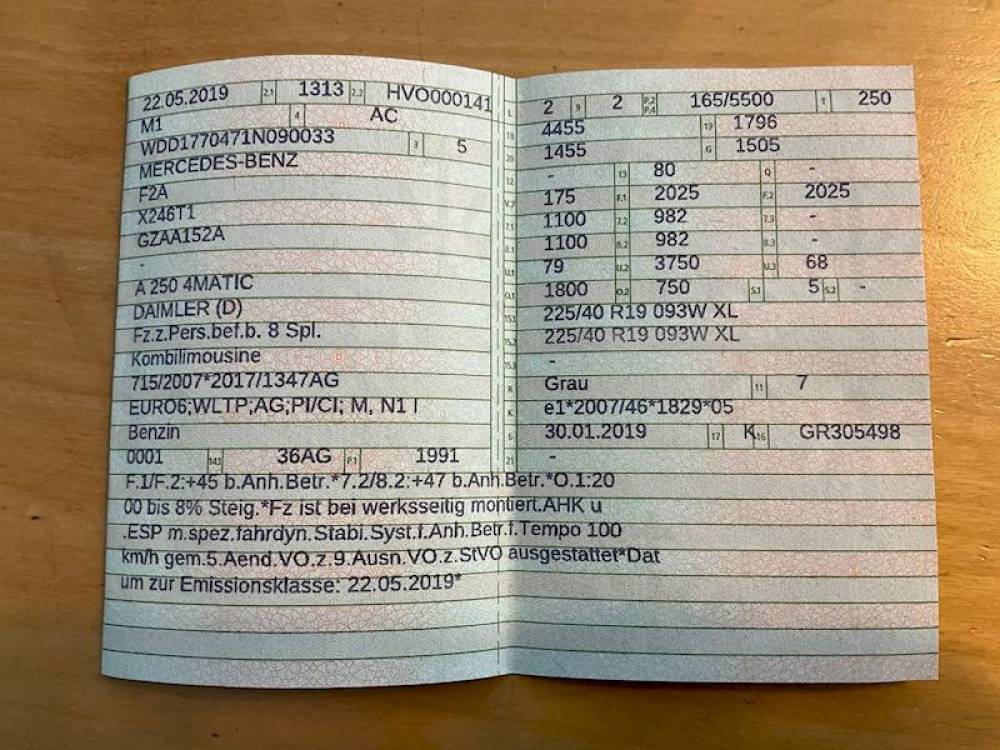 22.05.2019 2.1 1313 2.2 HVO000141
M1 4 AC
WDD1770471N090033 3 5
MERCEDES-BENZ
F2A
X246T1
GZAA152A
-
A 250 4MATIC
DAIMLER (D)
Fz.z.Pers.bef.b. 8 Spl.
Kombilimousine
715/2007*2017/1347AG
EURO6;WLTP;AG;PI/CI; M, N1 I
Benzin
0001 14.1 36AG P.1 1991
L 2 9 2 P.2 P.4 165/5500 T 250
18 4455 19 1796
20 1455 G 1505
12 - 13 80 Q -
V.7 175 F.1 2025 F.2 2025
7.1 1100 7.2 982 7.3 -
8.1 1100 8.2 982 8.3 -
U.1 79 U.2 3750 U.3 68
O.1 1800 O.2 750 S.1 5 S.2 -
15.1 225/40 R19 093W XL
15.2 225/40 R19 093W XL
15.3 -
R Grau 11 7
K e1*2007/46*1829*05
6 30.01.2019 17 K 16 GR305498
21 -
F.1/F.2:+45 b.Anh.Betr.*7.2/8.2:+47 b.Anh.Betr.*O.1:20
00 bis 8% Steig.*Fz ist bei werksseitig montiert.AHK u
.ESP m.spez.fahrdyn.Stabi.Syst.f.Anh.Betr.f.Tempo 100
km/h gem.5.Aend.VO.z.9.Ausn.VO.z.StVO ausgestattet*Dat
um zur Emissionsklasse: 22.05.2019*